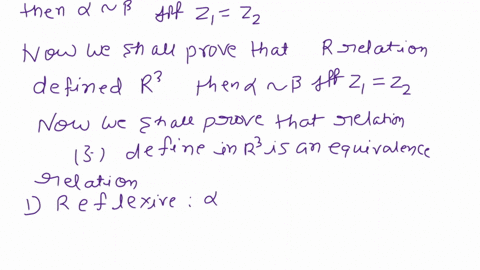 then α ~ β iff Z₁ = Z₂
Now we shall prove that R relation
defined R³ then α ~ β iff Z₁ = Z₂
Now we shall prove that relation
(3.) define in R³ is an equivalence
relation
1) Reflexive : α